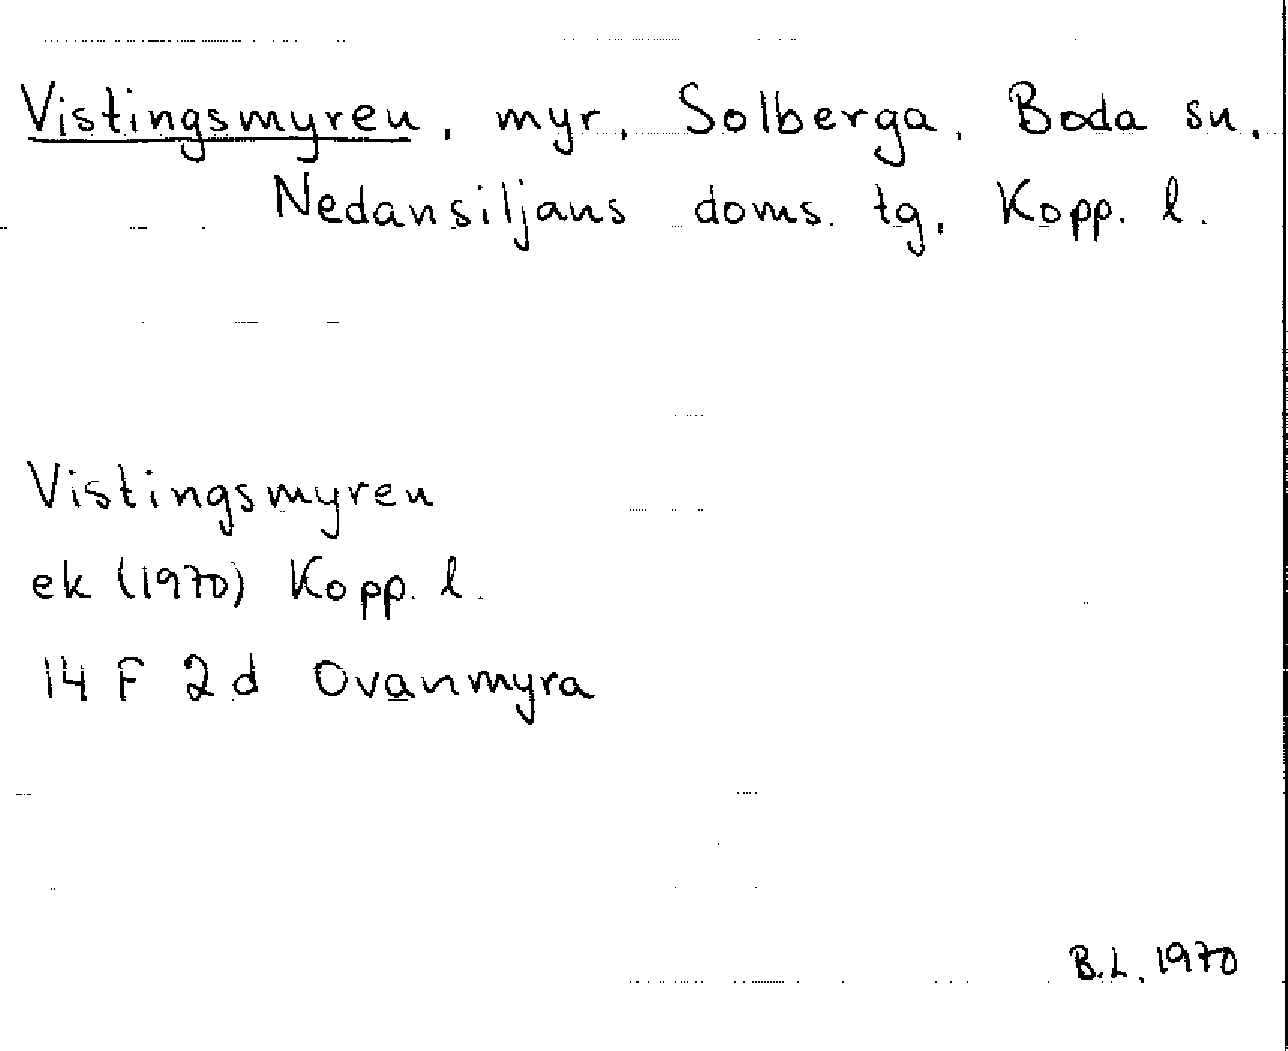 Vistingsmyren, myr, Solberga, Boda sn.
Nedansiljans doms. tg, Kopp. l.
Vistingsmyren
ek (1970) Kopp. l.
14 F 2 d Ovanmyra
B.L. 1970